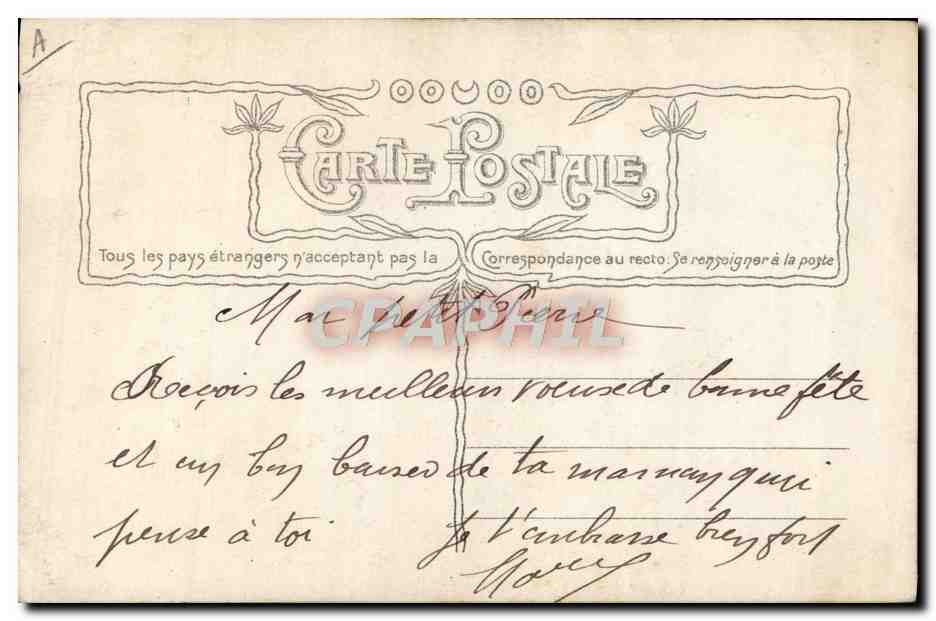 A
CARTE POSTALE
Tous les pays étrangers n'acceptant pas la Correspondance au recto: Se renseigner à la poste
CPAPHIL
Mon petit Pierre
Reçois les meilleurs voeux de bonne fête
et un bon baiser de ta maman qui
pense à toi je t'embrasse bien fort